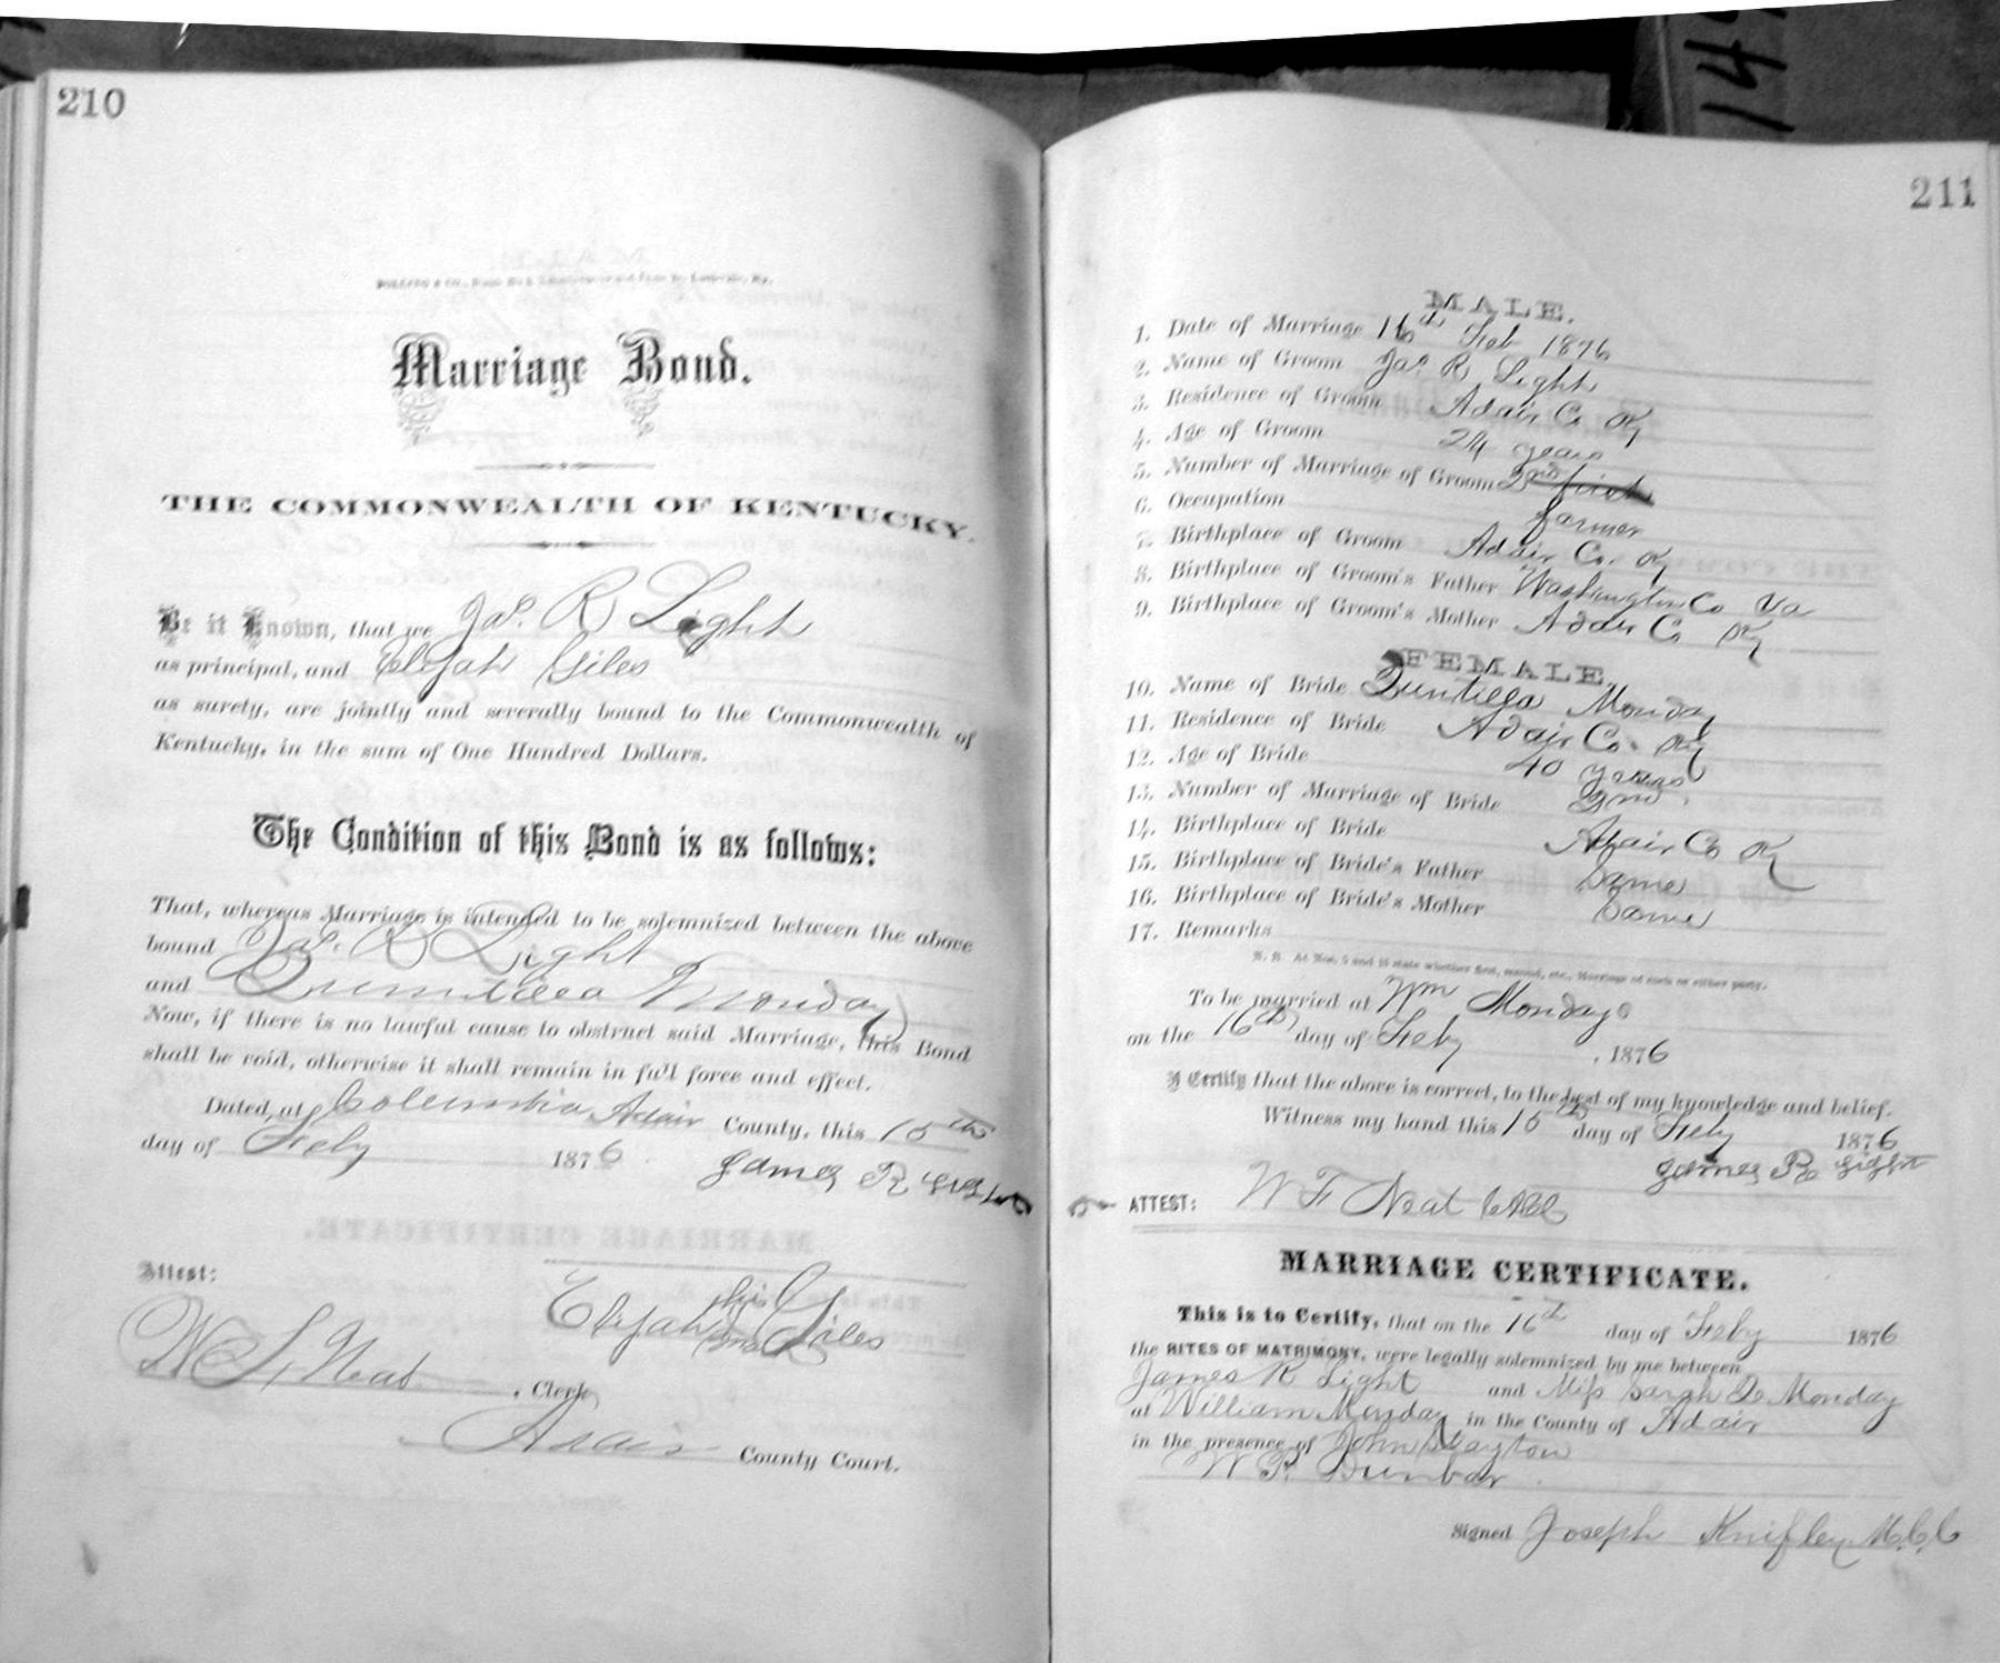 210
Marriage Bond.
THE COMMONWEALTH OF KENTUCKY.
Be it Known, that we Jas. R Light
as principal, and Elijah Giles
as surety, are jointly and severally bound to the Commonwealth of
Kentucky, in the sum of One Hundred Dollars.
The Condition of this Bond is as follows:
That, whereas Marriage is intended to be solemnized between the above
bound Jas. R Light
and Monday
Now, if there is no lawful cause to obstruct said Marriage, this Bond
shall be void, otherwise it shall remain in full force and effect.
Dated, at Columbia Adair County, this 15th
day of Feby 1876
James R Light
Attest:
Elijah his mark Giles
Neat, Clerk
Adair County Court.
211
149
MALE.
1. Date of Marriage 16th Feb 1876
2. Name of Groom Jas R Light
3. Residence of Groom Adair Co Ky
4. Age of Groom 24 years
5. Number of Marriage of Groom 2nd first
6. Occupation farmer
7. Birthplace of Groom Adair Co. Ky
8. Birthplace of Groom's Father Washington Co Va
9. Birthplace of Groom's Mother Adair Co Ky
FEMALE.
10. Name of Bride Monday
11. Residence of Bride Adair Co. Ky
12. Age of Bride 40 years
13. Number of Marriage of Bride 2nd
14. Birthplace of Bride Adair Co Ky
15. Birthplace of Bride's Father Same
16. Birthplace of Bride's Mother Same
17. Remarks
N. B. At Nos. 5 and 13 state whether first, second, etc., Marriage of each or either party.
To be married at Wm Mondays
on the 16th day of Feby, 1876
I Certify that the above is correct, to the best of my knowledge and belief.
Witness my hand this 15th day of Feby 1876
James R Light
ATTEST: W F Neat
MARRIAGE CERTIFICATE.
This is to Certify, that on the 16th day of Feby 1876
the RITES OF MATRIMONY, were legally solemnized by me between
James R Light and Miss Sarah Monday
at William Monday in the County of Adair
in the presence of John
Dunbar
Signed Joseph Knifley